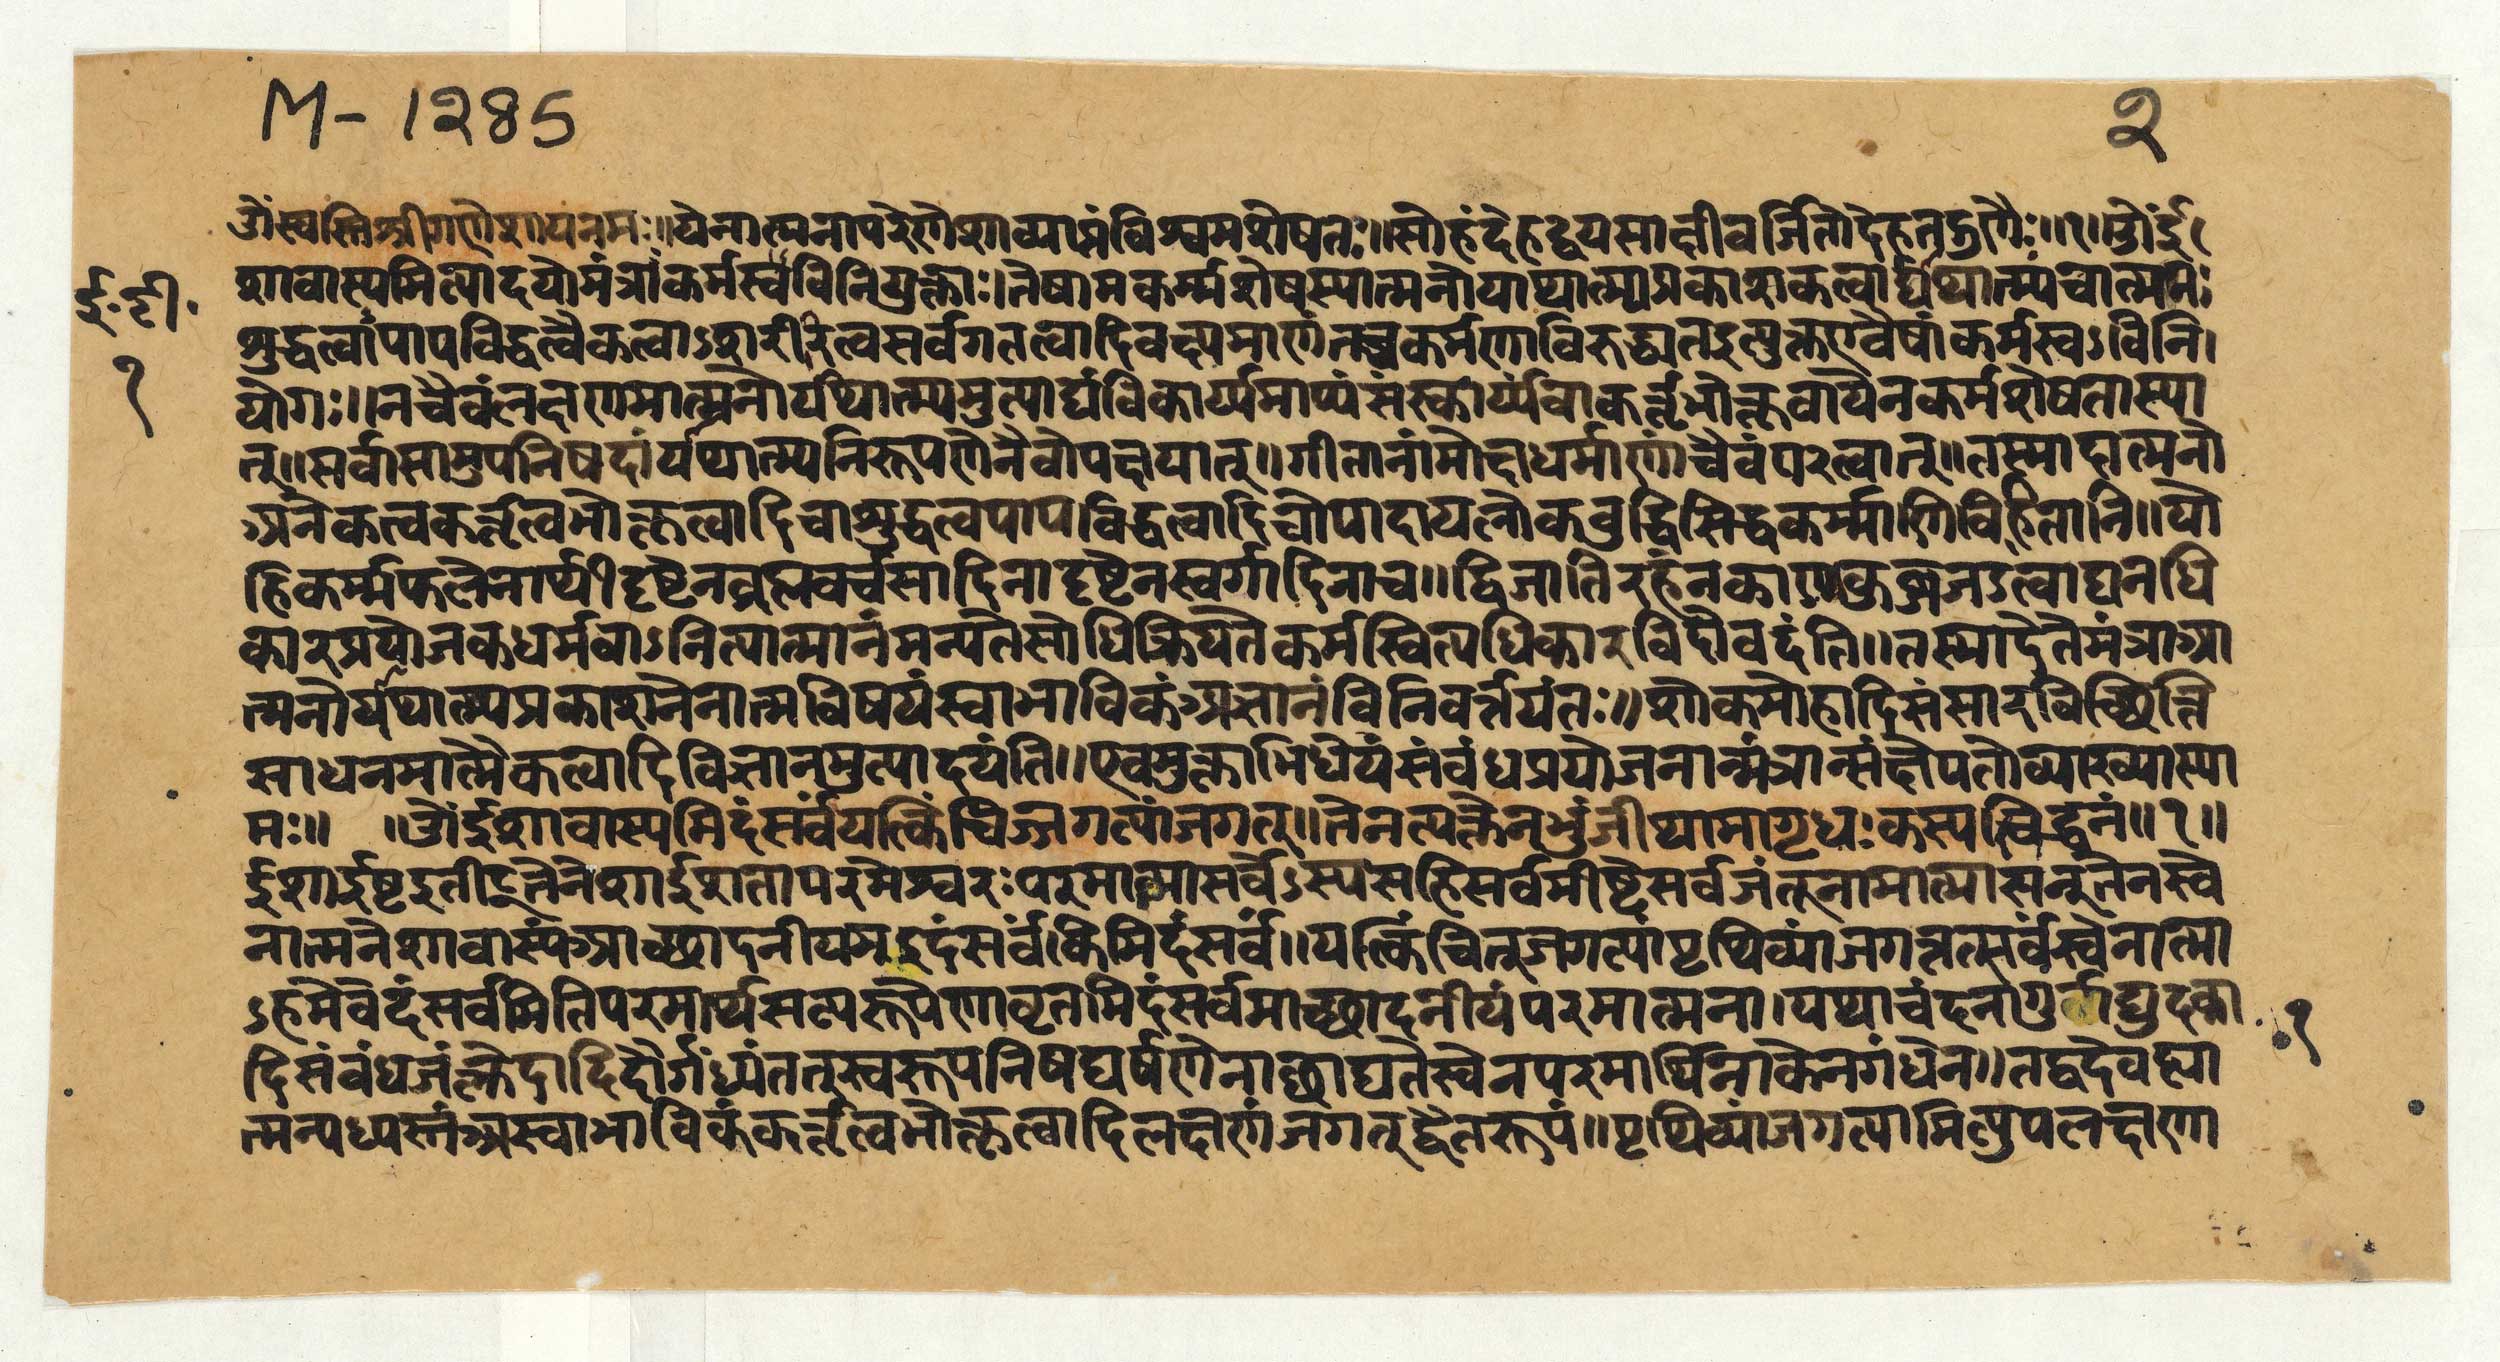 M-1285
२
ओंस्वस्तिश्रीगणेशायनमः॥येनात्मनापरेणेशाव्याप्तंविश्वमशेषतः॥सोहंदेहद्वयसाक्षीवर्जितोदेहतद्गुणैः॥१॥ओंई
ई॰टी॰
१
शावास्यमित्यादयोमंत्राःकर्मस्वविनियुक्ताः।तेषामकर्म्मशेषस्यात्मनोयाथात्म्यप्रकाशकत्वार्द्यथात्म्यंचात्मनः
शुद्धत्वापापविद्धत्वैकत्वाऽशरीरत्वसर्वगतत्वादिवक्ष्यमाणंतच्चकर्मणाविरुद्ध्यतइत्युक्तएवैषांकर्मस्वऽविनि।
योगः॥नचैवंलक्षणमात्मनोर्यथात्म्यमुत्पाद्यंविकार्य्यमाप्यंसंस्कार्य्यंवाकर्तृभोक्तृवायेनकर्मशेषतास्या
त्॥सर्वासामुपनिषदांर्यथात्म्यनिरूपणेनैवोपक्षयात्॥गीतानांमोक्षधर्माणांचैवंपरत्वात्॥तस्मादात्मनो
अनेकत्वकर्तृत्वभोक्तृत्वादिचाशुद्धत्वपापविद्धत्वादिचोपादायलोकबुद्धिसिद्धकर्म्माणिविहितानि॥यो
हिकर्म्मफलेनार्थीदृष्टेनब्रह्मवर्चसादिनादृष्टेनस्वर्गादिनाच॥द्विजातिरहंनकाणकुब्जऽत्वाद्यनधि
कारप्रयोजकधर्मवाऽनित्यात्मानंमन्यतेसोधिक्रियतेकर्मस्वित्यधिकारविदोवदंति॥तस्मादेतेमंत्राआ
त्मनोर्यथात्म्यप्रकाशनेनात्मविषयंस्वाभाविकंअज्ञानंविनिवर्त्तयंतः॥शोकमोहादिसंसारविच्छित्ति
साधनमात्मैकत्वादिविज्ञानमुत्पादयंति॥एवमुक्ताभिधेयंसंबंधप्रयोजनान्मंत्रान्संक्षेपतोव्याख्यास्या
मः॥ ॥ओंईशावास्यमिदंसर्वंयत्किंचिज्जगत्यांजगत्॥तेनत्यक्तेनभुंजीथामागृधःकस्यस्विद्धनं॥१॥
ईशाईष्टइतीट्तेनेशाईशतापरमेश्वरःपरमात्मासर्वऽस्यसहिसर्वमीष्टेसर्वजंतूनामात्मासन्तेनस्वे
नात्मनेशावास्यंआच्छादनीयम्इदंसर्वंकिमिदंसर्वं॥यत्किंचित्जगत्यांपृथिव्यांजगत्तत्सर्वंस्वेनात्मा
ऽहमेवेदंसर्वमितिपरमार्थसत्यरूपेणावृतमिदंसर्वमाच्छादनीयंपरमात्मना।यथाचंदनागुर्वाद्युदका
दिसंबंधजंक्लेदादिदौर्गंध्यंतत्स्वरूपनिषघर्षणेनाच्छाद्यतेस्वेनपरमार्थिनाकेनगंधेन॥तद्वदेवह्या
त्मन्यध्यस्तंअस्वाभाविकंकर्तृत्वभोक्तृत्वादिलक्षणंजगत्द्वैतरूपं॥पृथिव्यांजगत्यामित्युपलक्षणा
१